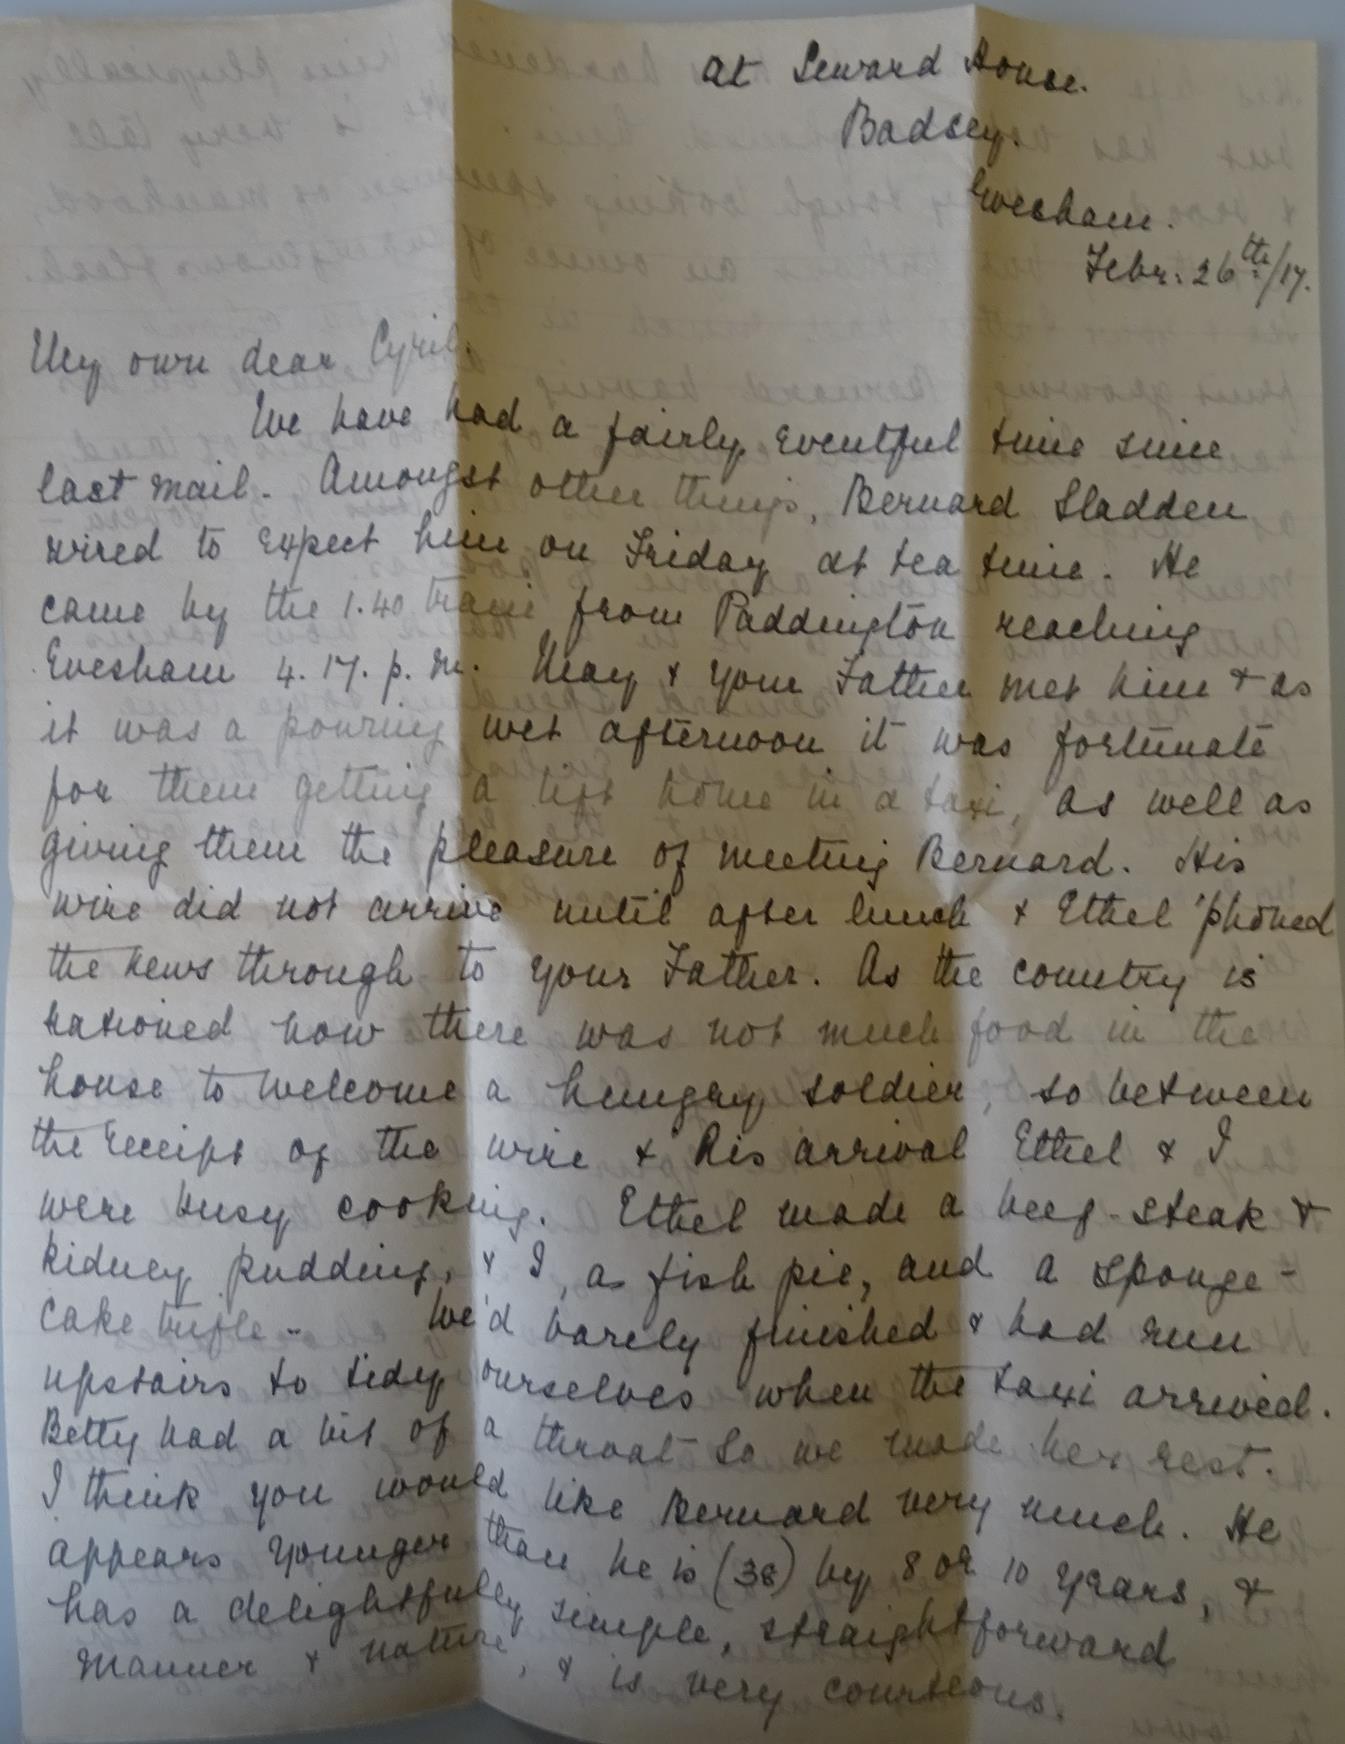 at Seward House.
Badsey.
Evesham.
Febr: 26th/17.
My own dear Cyril,
We have had a fairly eventful time since
last mail. Amongst other things, Bernard Sladden
wired to expect him on Friday at tea time. He
came by the 1.40 train from Paddington reaching
Evesham 4.17. p.m. May & your Father met him & as
it was a pouring wet afternoon it was fortunate
for them getting a lift home in a taxi, as well as
giving them the pleasure of meeting Bernard. His
wire did not arrive until after lunch & Ethel 'phoned
the news through to your Father. As the country is
rationed now there was not much food in the
house to welcome a hungry soldier, so between
the receipt of the wire & his arrival Ethel & I
were busy cooking. Ethel made a beef-steak &
kidney pudding, & I, a fish pie, and a sponge-
cake trifle - We'd barely finished & had run
upstairs to tidy ourselves when the taxi arrived.
Betty had a bit of a throat so we made her rest.
I think you would like Bernard very much. He
appears younger than he is (38) by 8 or 10 years, &
has a delightfully simple, straightforward
manner & nature, & is very courteous.